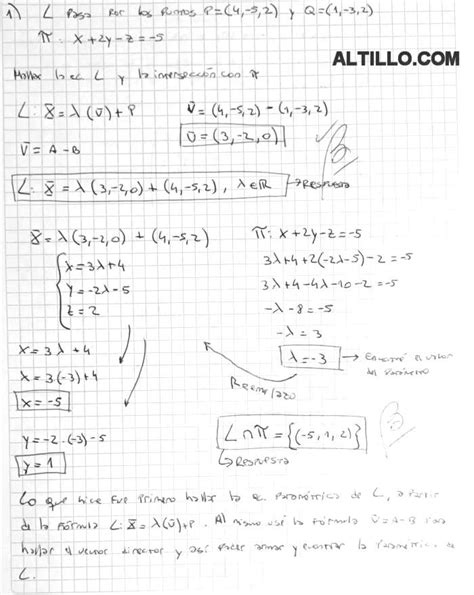 1) L pasa por los puntos P=(4,-5,2) y Q=(1,-3,2)
π: x+2y-z=-5
ALTILLO.COM
Hallar la ec L y la intersección con π
L: X̄=λ(v̄)+P
v̄=(4,-5,2)-(1,-3,2)
v̄=(3,-2,0)
v̄=A-B
L: X̄=λ(3,-2,0)+(4,-5,2), λ∈ℝ → Respuesta
B
X̄=λ(3,-2,0)+(4,-5,2)
x=3λ+4
y=-2λ-5
z=2
π: x+2y-z=-5
3λ+4+2(-2λ-5)-2=-5
3λ+4-4λ-10-2=-5
-λ-8=-5
-λ=3
λ=-3 → Encontré el valor
del parámetro
Reemplazo
x=3λ+4
x=3·(-3)+4
x=-5
y=-2·(-3)-5
y=1
L∩π={(-5,1,2)}
→ Respuesta
B
Lo que hice fue primero hallar la ec. paramétrica de L, a partir
de la fórmula L: X̄=λ(v̄)+P. Al mismo usé la fórmula v̄=A-B para
hallar el vector director y así poder armar y encontrar la paramétrica de
L.